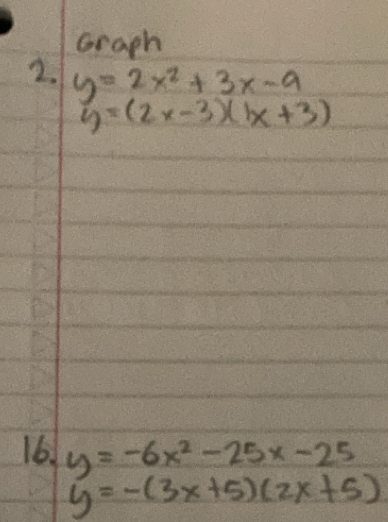 Graph
2. y = 2x² + 3x - 9
y = (2x - 3)(1x + 3)
16. y = -6x² - 25x - 25
y = -(3x + 5)(2x + 5)